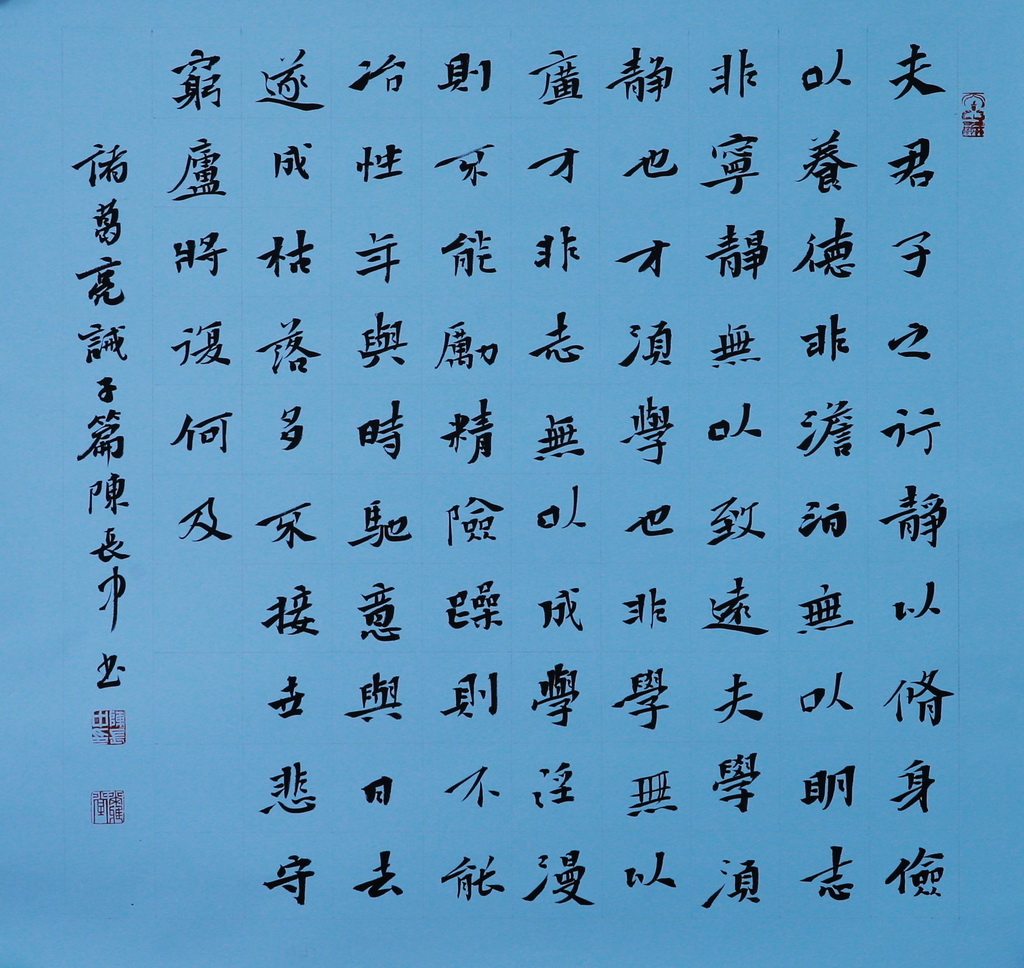 夫君子之行靜以脩身儉
以養德非澹泊無以明志
非寧靜無以致遠夫學須
靜也才須學也非學無以
廣才非志無以成學淫漫
則不能勵精險躁則不能
冶性年與時馳意與日去
遂成枯落多不接世悲守
窮廬將復何及
諸葛亮誡子篇陳長中书